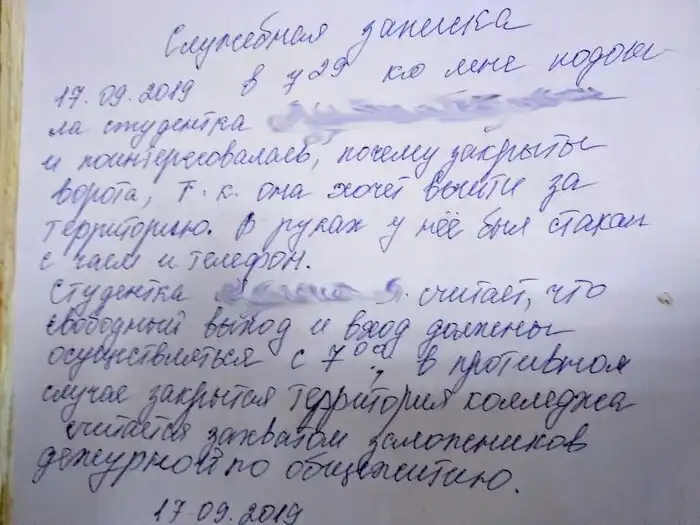 Служебная записка
17.09.2019 в 7 29 ко мне подош-
ла студентка
и поинтересовалась, почему закрыты
ворота, т.к. она хочет выйти за
территорию. В руках у неё был стакан
с чаем и телефон.
Студентка считает, что
свободный выход и вход должены
осуществляться с 7 00, в противном
случае закрытая территория колледжа
считается захватом заложников
дежурной по общежитию.
17.09.2019